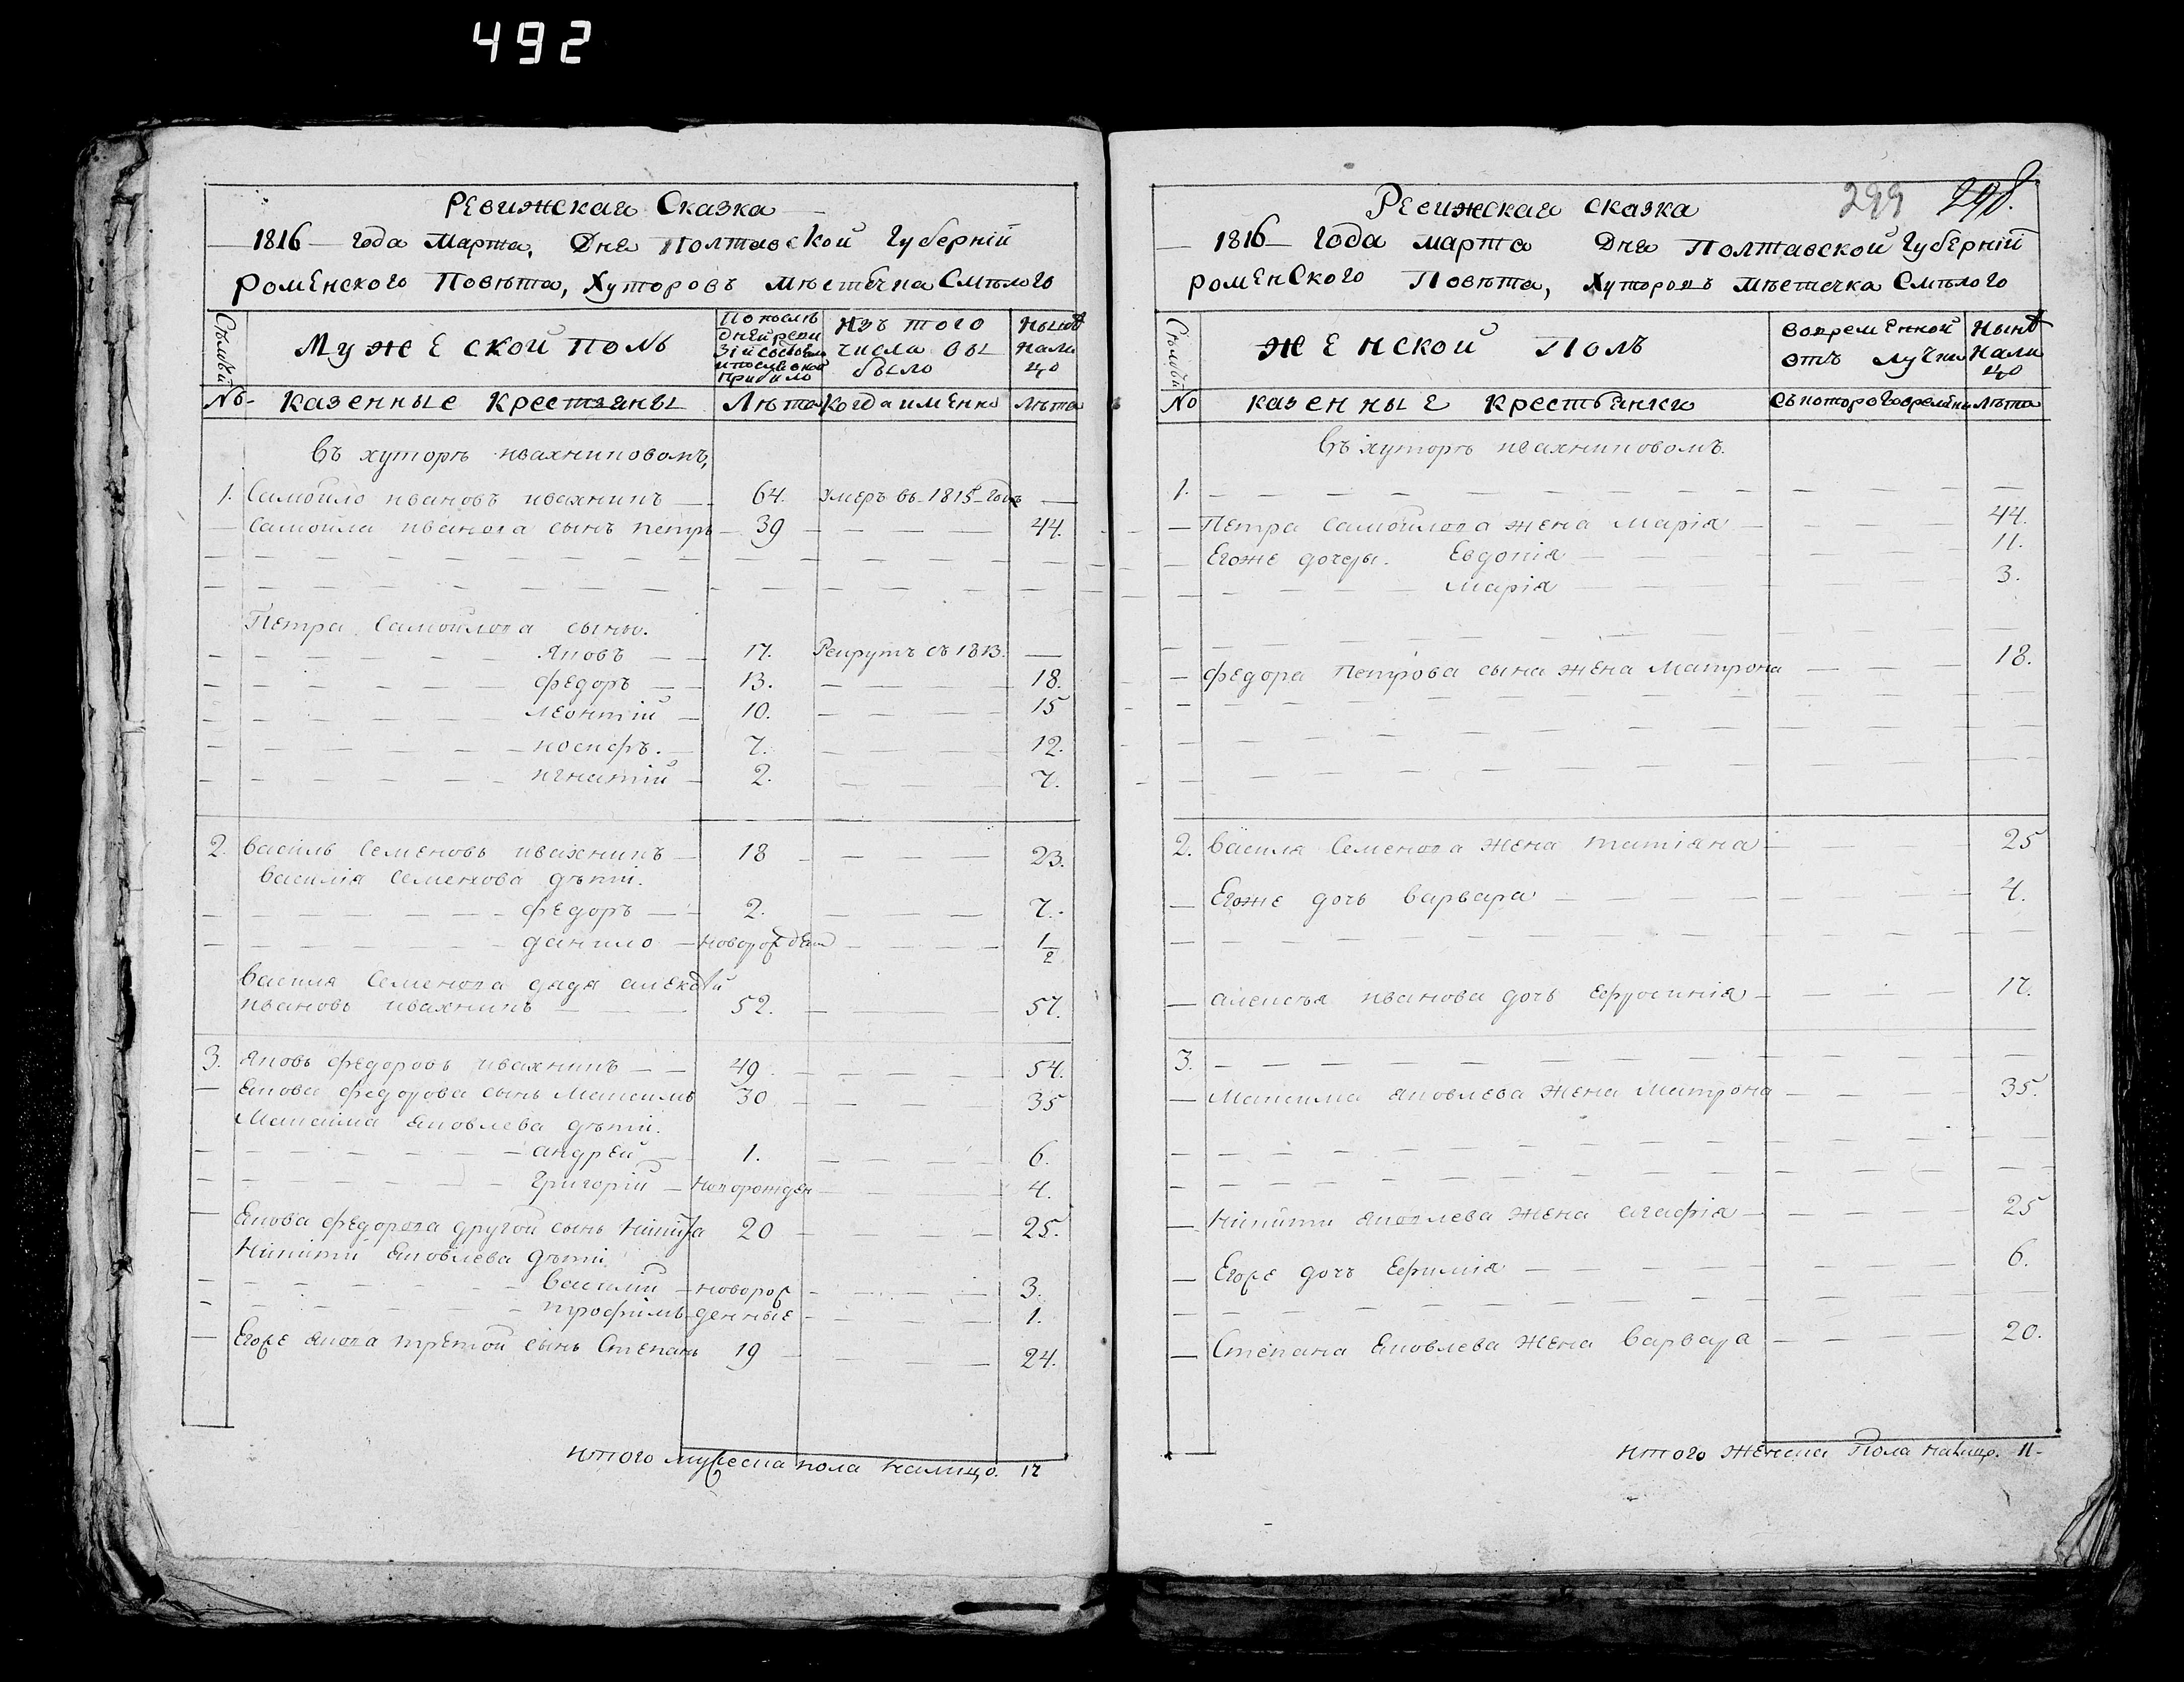 492
Ревижская Сказка
1816 года Марта, Дня Полтавской Губерніи
Роменского Повѣта, Хуторовъ мѣстечка Смѣлого
Мужеской полъ
изъ того числа выбыло
Нынѣ налицо
№ казенные Крестьяны Лѣта Когда именно Лѣта
Въ хуторѣ ивахниновомъ,
1. Самойло ивановъ ивахнинъ 64. умеръ въ 1815 годѣ
Самойла иванова сынъ петръ 39 44.
Петра Самойлова сыны.
Яковъ 17. Рекрутъ съ 1813.
федоръ 13. 18.
леонтій 10. 15
иосифъ. 7. 12.
игнатій 2. 7.
2. василь Семеновъ ивахнинъ 18 23.
василія Семенова дѣти.
федоръ 2. 7.
данило новорожден 1/2
василя Семенова дядя алексѣй
ивановъ ивахнинъ 52. 57.
3. яковъ федоровъ ивахнинъ 49 54.
якова федорова сынъ Максимъ 30 35
Максима яковлева дѣти.
андрей 1. 6.
григорій новорожден 4.
якова федорова другой сынъ Никита 20 25.
Никити яковлева дѣти
василій новорож 3.
трофимъ денные 1.
Егоже якова третой сынъ Степанъ 19 24.
итого мужеска пола налицо. 17
299 298.
Ревижская сказка
1816 года марта Дня Полтавской Губерніи
роменского Повѣта, Хуторовъ мѣстечка Смѣлого
женской Полъ
вовременной отъ лучки
Нынѣ налицо
№ казенные крестьянки съ которого времени Лѣта
Въ хуторѣ ивахниновомъ.
1.
Петра Самойлова жена марія 44.
Егоже дочеры. Евдокія 11.
марія 3.
федора Петрова сына жена матрона 18.
2. василя Семенова жена татіяна 25
Егоже дочь варвара 4.
алексѣя иванова дочь ефросинія 17.
3.
Максима яковлева жена матрона 35.
Никити яковлева жена агафія 25
Егоже дочь Ефимія 6.
Степана яковлева жена варвара 20.
итого женска Пола налицо. 11.